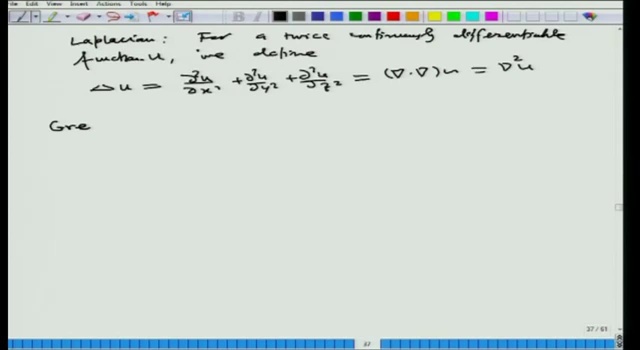 File Edit View Insert Actions Tools Help
Laplacian: For a twice continuously differentiable
function u, we define
Δu = ∂²u/∂x² + ∂²u/∂y² + ∂²u/∂z² = (∇·∇)u = ∇²u
Gre
37 / 61
37